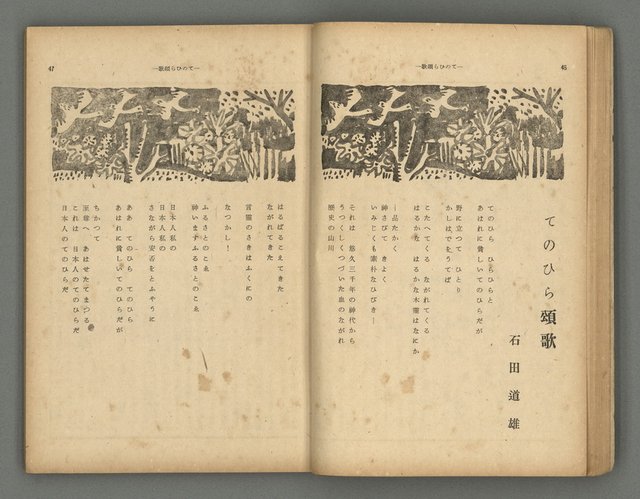 46
―てのひら頌歌―
てのひら頌歌
石田道雄
てのひら　ひらひらと
あはれに貧しいてのひらだが
野に立つて　ひとり
かしはでをうてば
こたへてくる　ながれてくる
はるかな　はるかな木靈はなにか
―品たかく
神さびて　きよく
いみじくも素朴なひびき―
それは　悠久三千年の神代から
うつくしくつづいた血のながれ
歴史の山川
47
―てのひら頌歌―
はるばるこえてきた
ながれてきた
言靈のさきはふくにの
なつかし！
ふるさとのこゑ
神いますふるさとのこゑ
日本人私の
日本人私の
さながら安否をとふやうに
ああ　てのひら　てのひら
あはれに貧しいてのひらだが
ちかつて
至尊へ　あはせたてまつる
これは　日本人のてのひらだ
日本人のてのひらだ